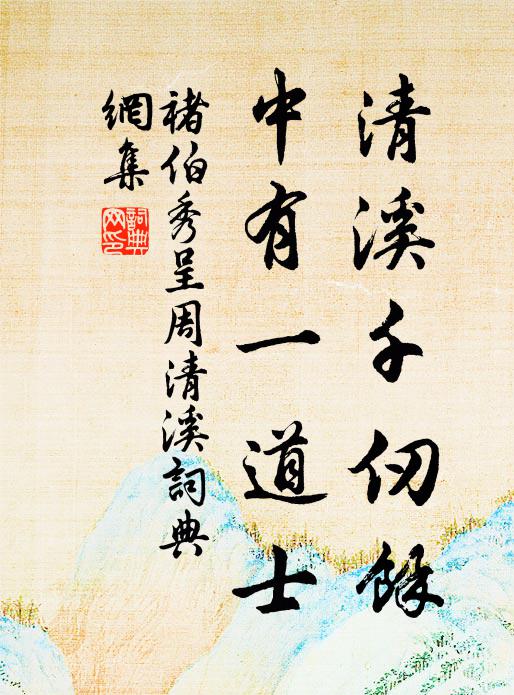 清溪千仞餘
中有一道士
褚伯秀呈周清溪詞典
網集
詞典網印